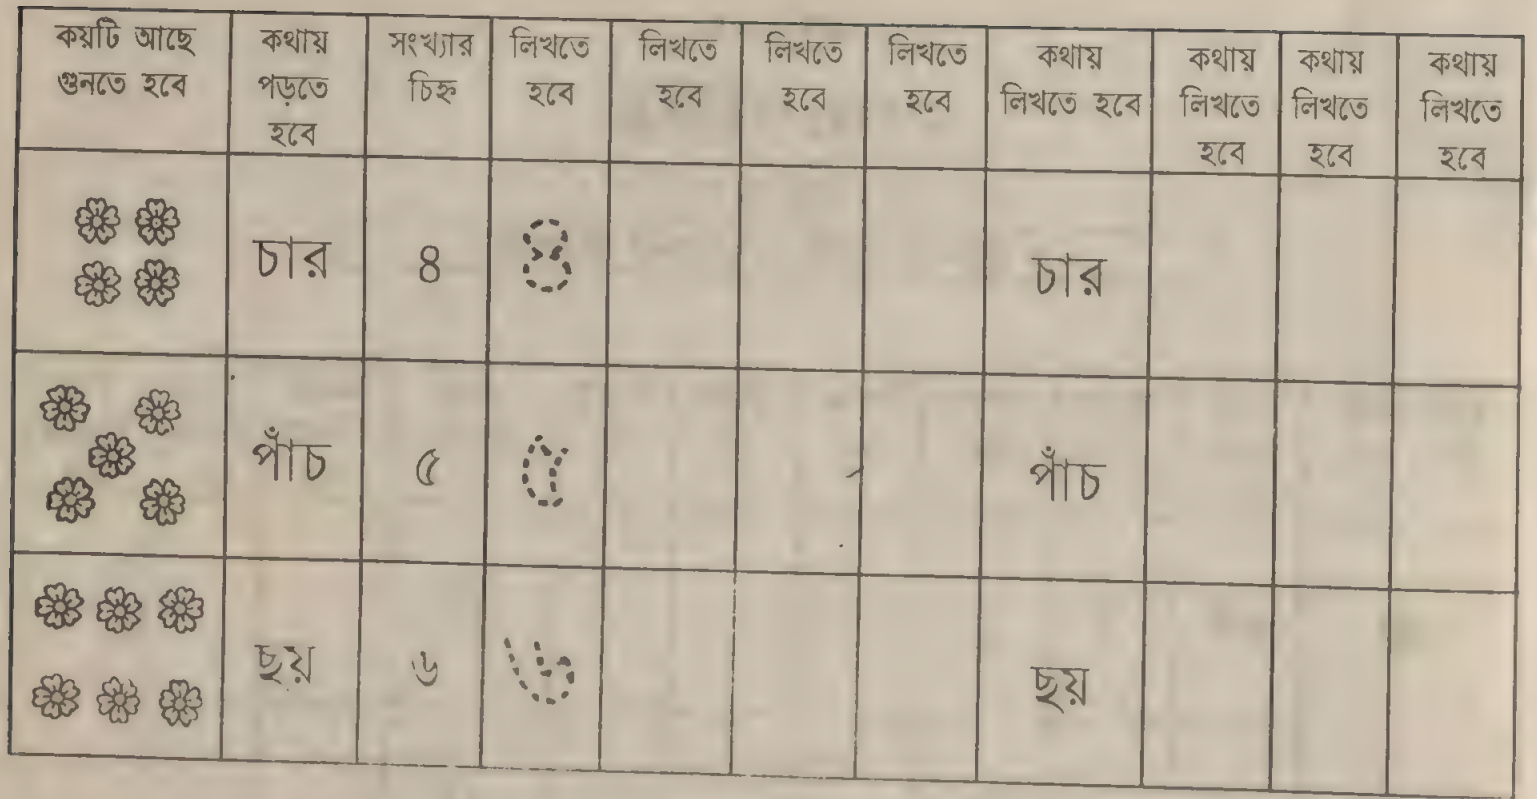 কয়টি আছে গুনতে হবে | কথায় পড়তে হবে | সংখ্যার চিহ্ন | লিখতে হবে | লিখতে হবে | লিখতে হবে | লিখতে হবে | কথায় লিখতে হবে | কথায় লিখতে হবে | কথায় লিখতে হবে | কথায় লিখতে হবে
চার ৪ ৪ চার
পাঁচ ৫ ৫ পাঁচ
ছয় ৬ ৬ ছয়